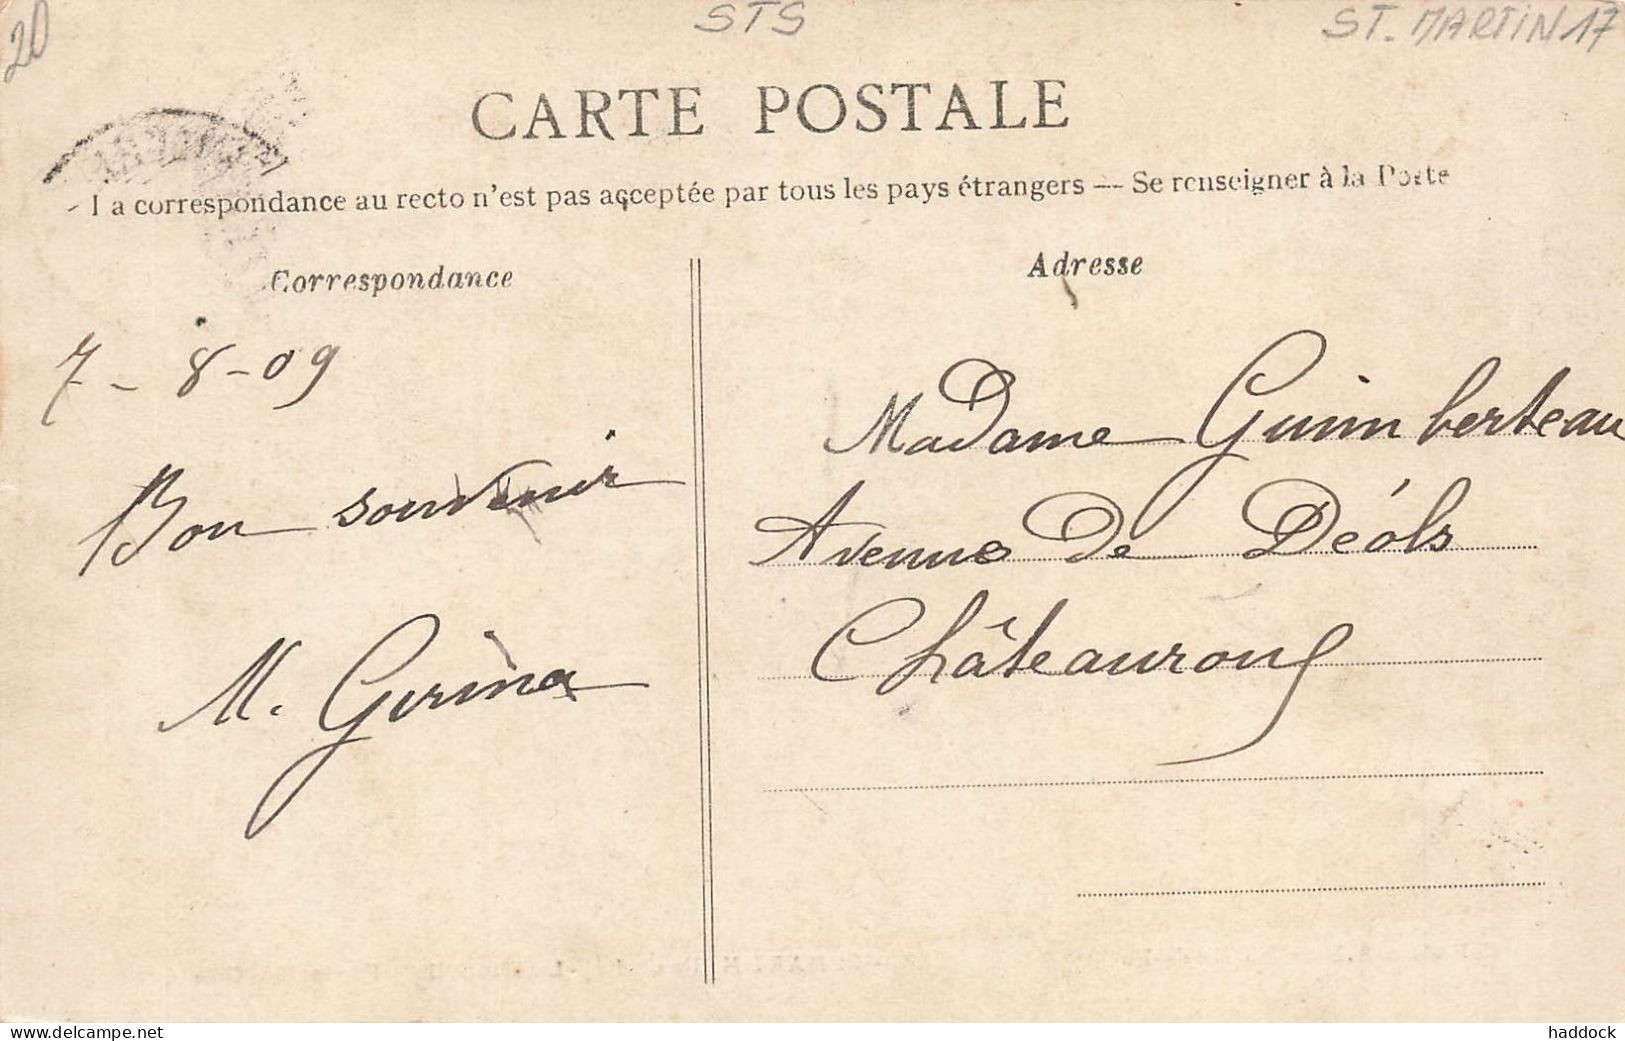 20
STS
ST. MARTIN 17
CARTE POSTALE
La correspondance au recto n'est pas acceptée par tous les pays étrangers — Se renseigner à la Poste
Correspondance
Adresse
7 - 8 - 09
Bon souvenir
Madame Guimberteau
Avenue de Déols
Châteauroux
www.delcampe.net
haddock